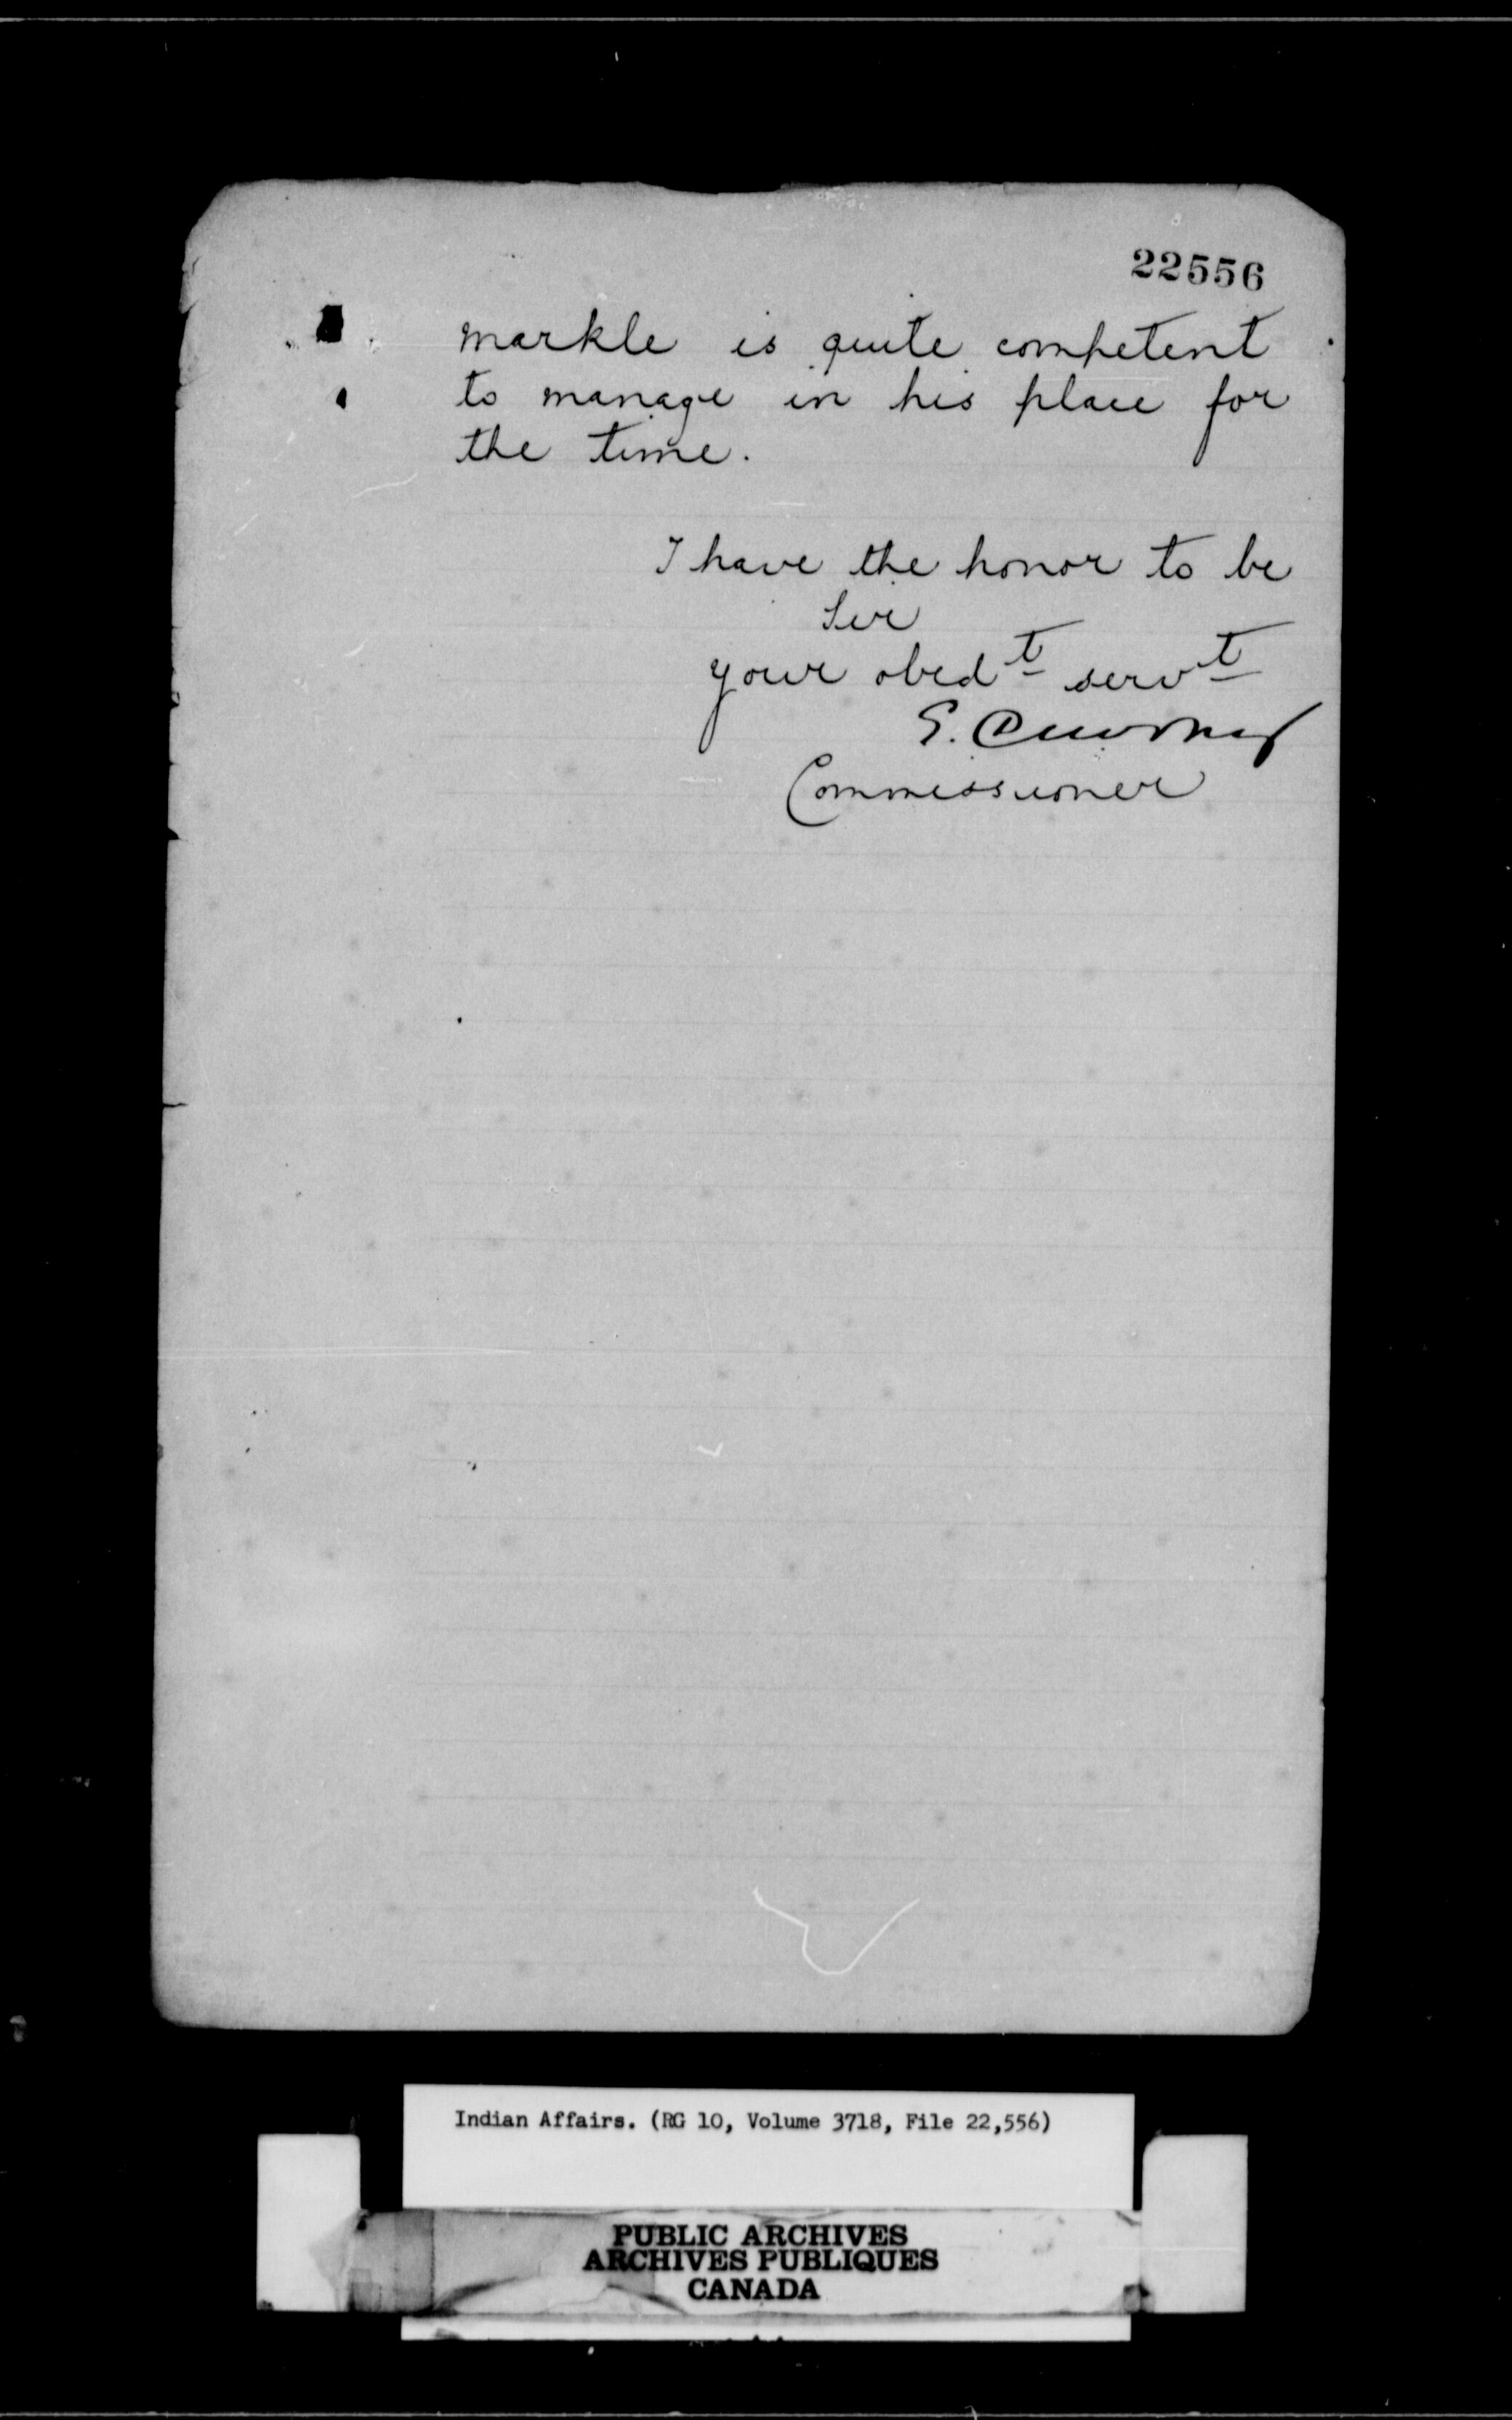 22556
Markle is quite competent
to manage in his place for
the time.
I have the honor to be
Sir
your obedt servt
E. Dewdney
Commissioner
Indian Affairs. (RG 10, Volume 3718, File 22,556)
PUBLIC ARCHIVES
ARCHIVES PUBLIQUES
CANADA